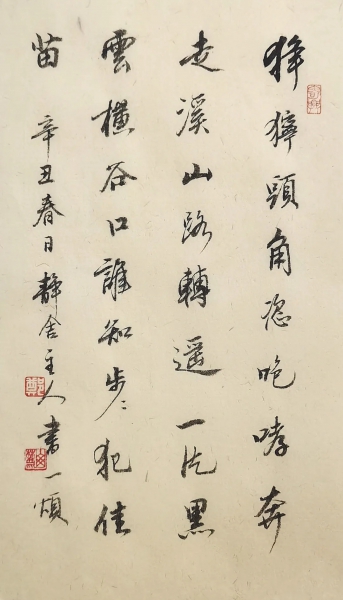 猙獰頭角恣咆哮奔
走溪山路轉遥一片黑
雲橫谷口誰知步〻犯佳
苗 辛丑春日靜舍主人書一頌